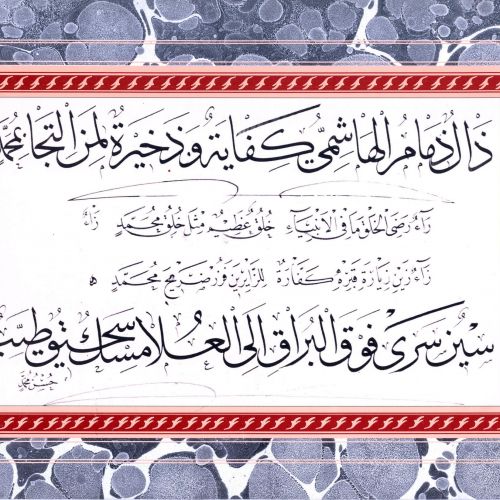 ذال ذمام الهاشمي كفاية وذخيرة لمن التجا بمحمد
راء رضي الخلق ما في الانبياء خلق عظيم مثل خلق محمد زاء
زاء زين زيارة قبره كفارة للزايرين فزر ضريح محمد ه
سين سرى فوق البراق الى العلا مسك سحيق طيب
حسن محمد